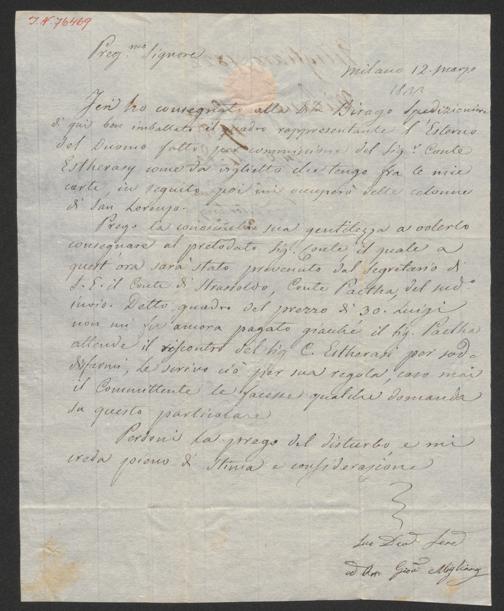 I.N. 76469
Preg.mo Signore
Milano 12. Marzo
Jeri ho consegnato alla Birago Spedizionire
di quì ben imballato il quadro rappresentante l'Esterno
del Duomo fatto per commissione del Sig.r Conte
Estherasy come da viglietto che tengo fra le mie
carte, in seguito poi mi occuperò delle colonne
di San Lorenzo.
Prego la conosciuta sua gentilezza a volerlo
consegnare al prelodato Sig. Conte, il quale a
quest'ora sarà stato prevenuto dal Segretario di
S. E. il Conte di Strasoldo, Conte Pactha, del sud.o
invio. Detto quadro del prezzo di 30. Luigi
non mi fù ancora pagato giacchè il Sig. Pactha
attende il riscontro del Sig. C. Estherasi per sod=
disfarmi, Le scrivo ciò per sua regola, caso mai
il Committente le facesse qualche domanda
su questo particolare
Perdoni La prego del disturbo e mi
creda pieno di Stima e considerazione
Suo Serv.
Gio. Migliara